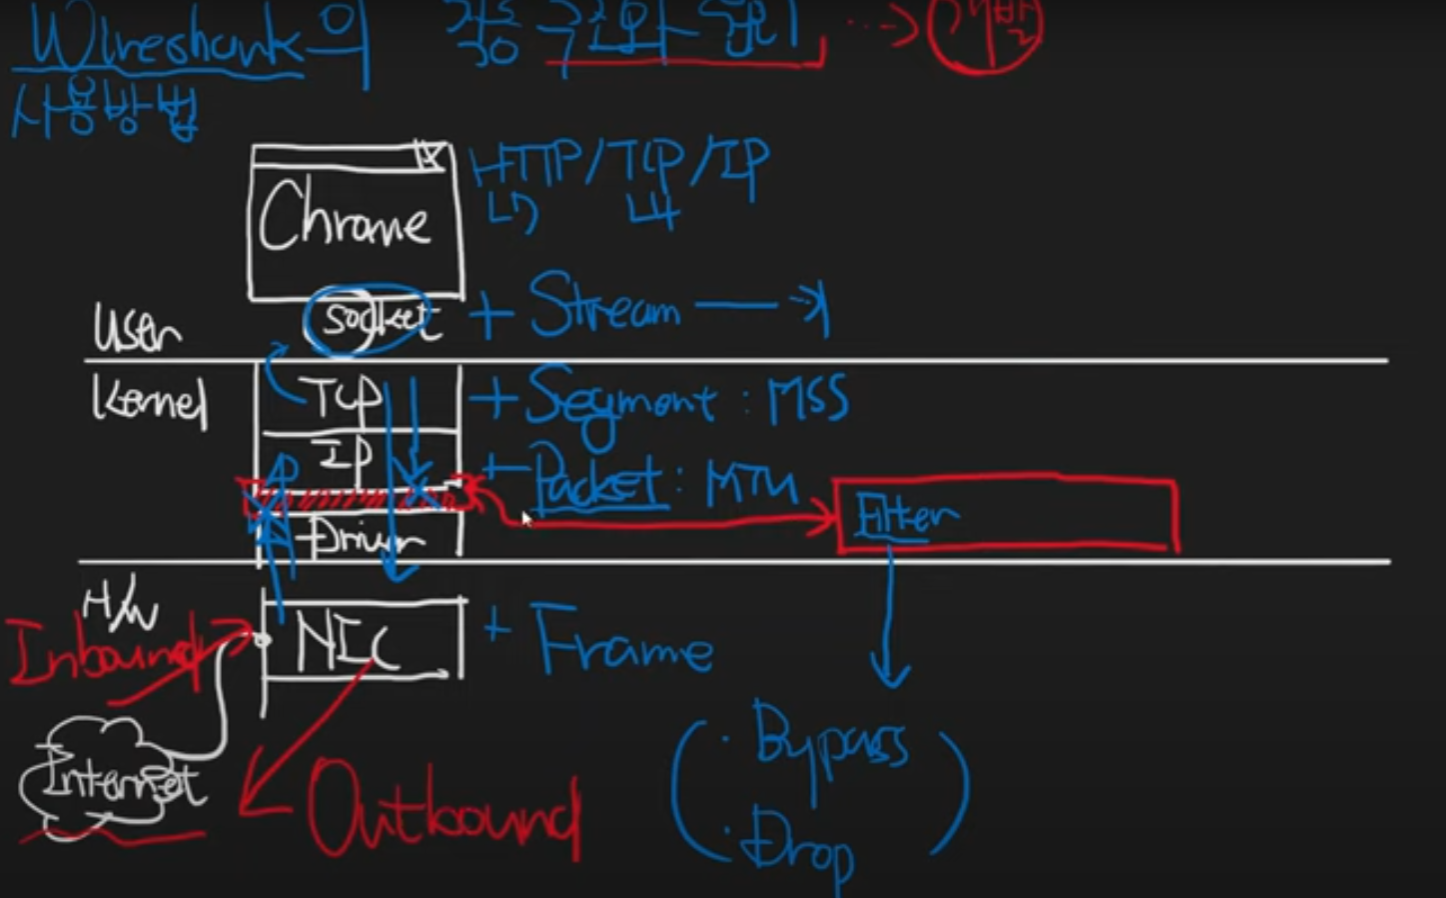 Wireshark의 각종 구현와 원리 → 개발
사용방법
Chrome
HTTP/TCP/IP
L7 L4
User
Socket + Stream →
Kernel
TCP + Segment : MSS
IP + Packet : MTU
Filter
Driver
H/W
Inbound
NIC + Frame
Internet
Outbound
· Bypass
· Drop